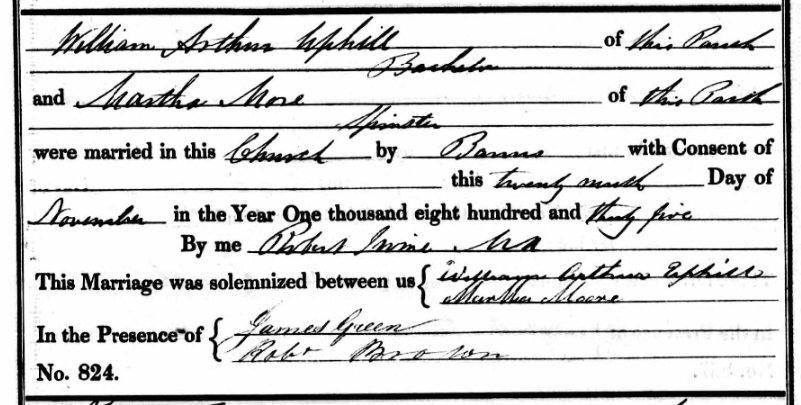 William Arthur Uphill of this Parish
Bachelor
and Martha More of this Parish
Spinster
were married in this Church by Banns with Consent of
this twenty ninth Day of
November in the Year One thousand eight hundred and thirty five
By me Robert Irvine MA
This Marriage was solemnized between us { William Arthur Uphill
Martha Moore
In the Presence of { James Green
Robt Brown
No. 824.